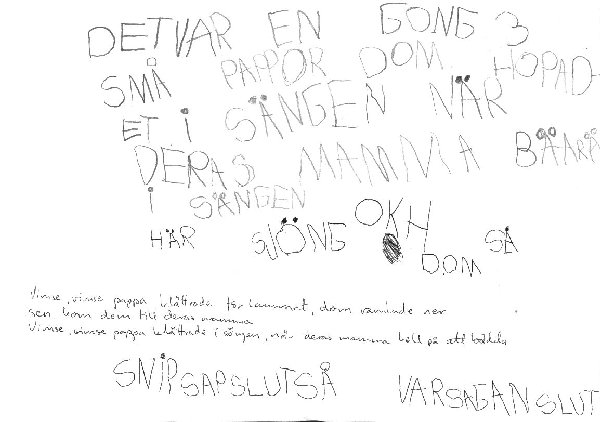 DETVAR EN GONG 3
SMÅ PAPPOR DOM HOPAD-
ET i SÄNGEN NÄR
DERAS MAMMA BÄÄRÄ
i SÄNGEN
HÄR SJÖNG OKH DOM SÅ
Vimse, vimse pappa klättrade för lammet, dom ramlade ner
sen kom dem till deras mamma
Vimse, vimse pappa klättrade i sängen, när deras mamma höll på att bädda
SNIP SAP SLUT SÅ
VAR SAGAN SLUT